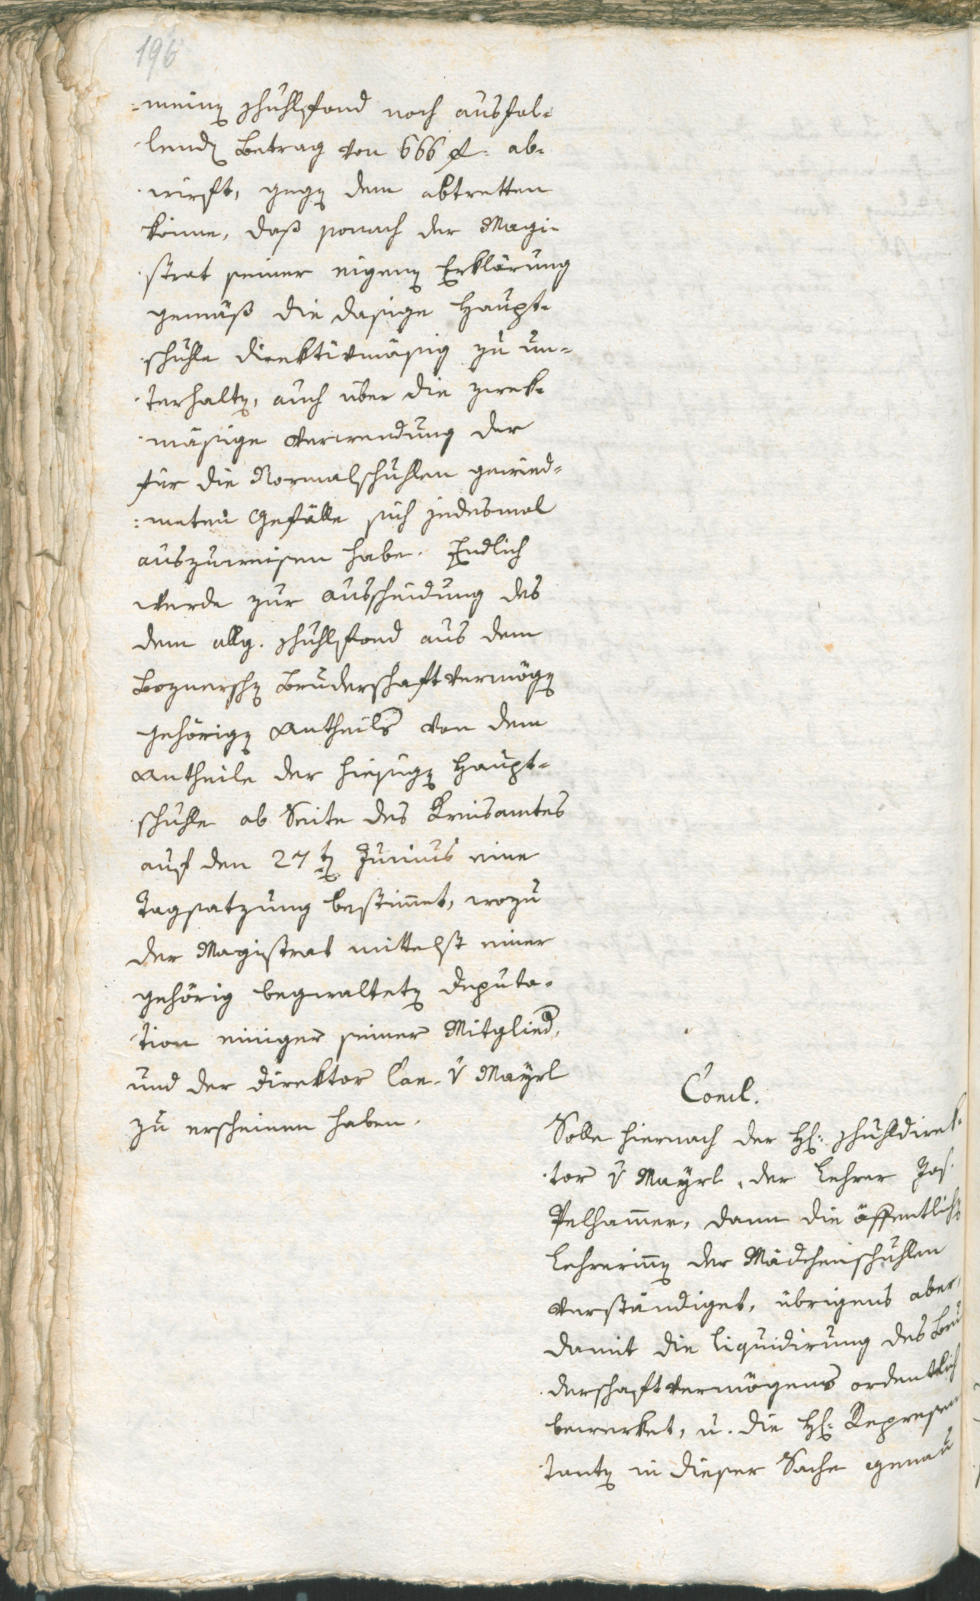 196
-meinen Schuhlfond noch ausfal-
lenden Betrag von 666 f: ab-
wirft, gegen dem abtretten
könne, daß sonach der Magi-
strat seiner eigenen Erklärung
gemäß die dasige Haupt-
schuhle direktivmäsig zu un-
terhalten, auch über die zwek-
mäsige Verwendung der
für die Normalschuhlen gewied-
:meten Gefälle sich jedesmal
auszuweisen habe. Endlich
werde zur Ausscheidung des
dem allg. Schuhlfond aus dem
Boznerschen Bruderschaftvermögen
gehörigen Antheils von dem
Antheile der hiesigen Haupt-
schuhle ab Seite des Kreisamtes
auf den 27ten Junius eine
Tagsatzung bestimet, wozu
der Magistrat mittelst einer
gehörig begwalteten Deputa-
tion einiger seiner Mitglied,
und der Direktor Can. v Mayrl
zu erscheinen haben.
Concl.
Solle hiernach der H: Schuhldirek-
tor v Mayrl, der Lehrer Jos.
Pelhamer, dann die öffentlichen
Lehrerinnen der Mädchenschuhlen
verständiget, übrigens aber,
damit die Liquidirung des Bru
derschaftvermögens ordentlich
bewerket, u. die H: Represen
tanten in dieser Sache genau